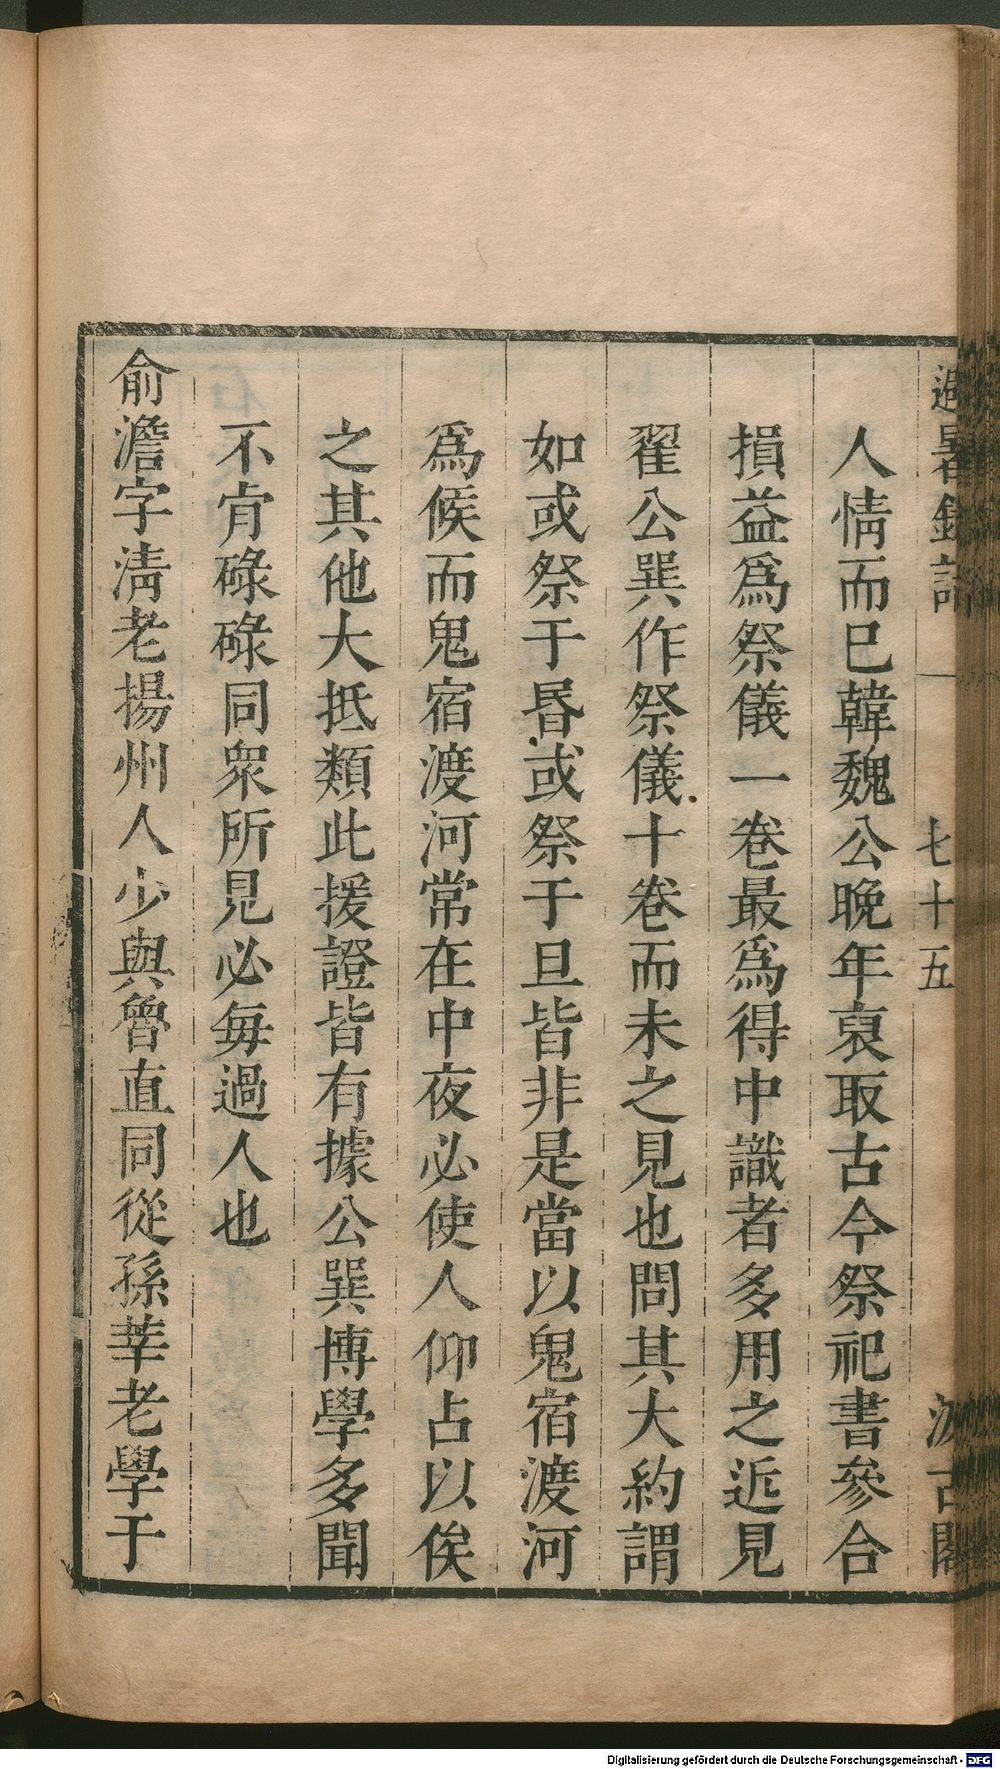 避暑錄話
七十五
汲古閣
人情而巳韓魏公晚年裒取古今祭祀書參合
損益爲祭儀一卷最爲得中識者多用之近見
翟公巽作祭儀十卷而未之見也問其大約謂
如或祭于昬或祭于旦皆非是當以鬼宿渡河
爲候而鬼宿渡河常在中夜必使人仰占以俟
之其他大抵類此援證皆有據公巽博學多聞
不肯碌碌同衆所見必每過人也
俞澹字淸老揚州人少與魯直同從孫莘老學于
Digitalisierung gefördert durch die Deutsche Forschungsgemeinschaft - DFG